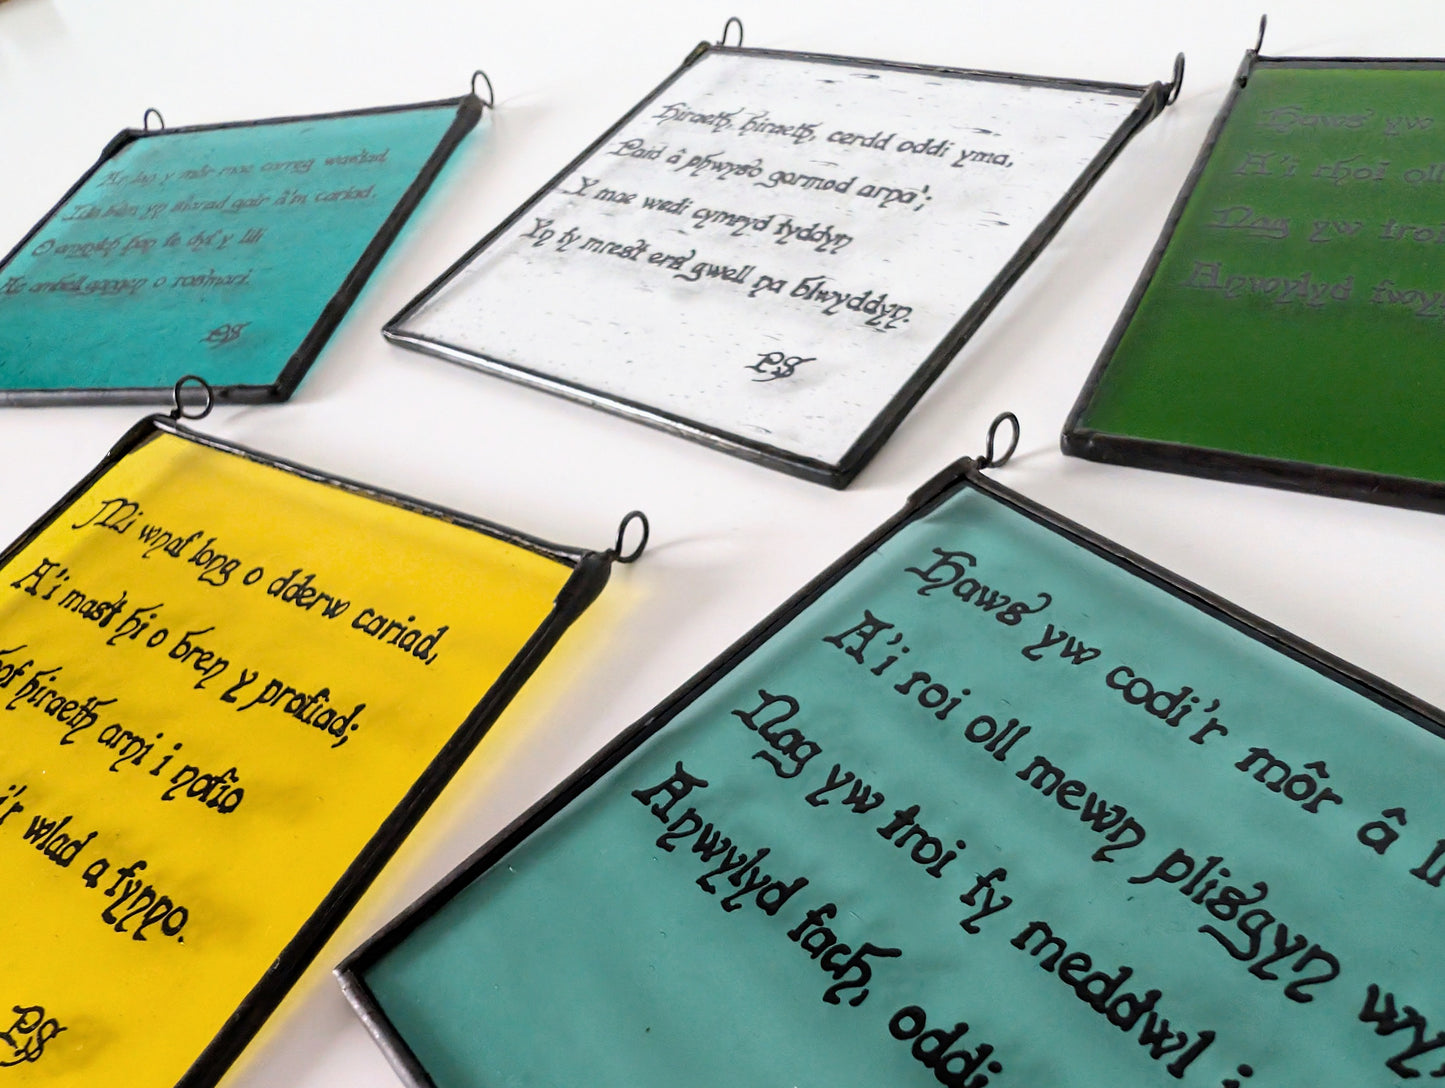 Ar lan y môr mae carreg wastad,
bûm yn siarad gair â'm cariad.
O amgylch hon fe dyf y lili
Ac ambell gangen o rosmari.
PS
Hiraeth, hiraeth, cerdd oddi yma,
Paid â phwyso gormod arna';
Y mae wedi cymryd tyddyn
Yn fy mrest ers gwell na blwyddyn.
PS
Haws yw
A'i rhoi oll
Nag yw troi
Anwylyd
Mi wnaf long o dderw cariad,
A'i mast hi o bren y profiad;
hiraeth arni i nofio
i'r wlad a fynno.
PS
Haws yw codi'r môr â
A'i roi oll mewn plisgyn
Nag yw troi fy meddwl i
Anwylyd fach, oddi